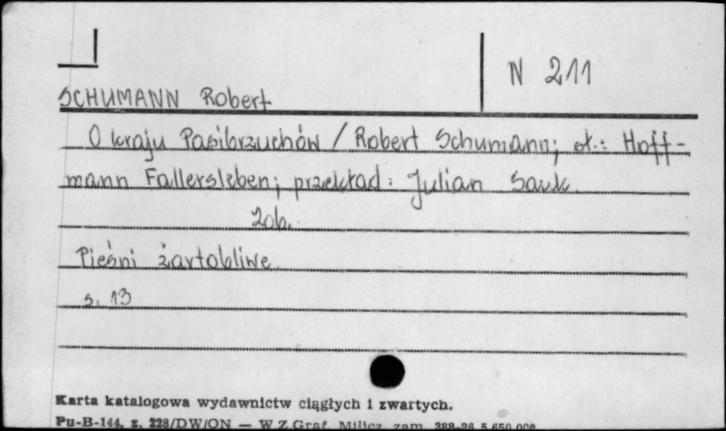 N 211
SCHUMANN Robert
O kraju Pasibrzuchów / Robert Schumann; sł.: Hoff-
mann Fallersleben; przekład: Julian
Zob.
Pieśni żartobliwe.
s. 13
Karta katalogowa wydawnictw ciągłych i zwartych.
Pu-B-144, z. 228/DW/ON — W.Z.Graf. Milicz zam.